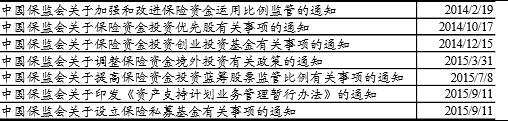 中国保监会关于加强和改进保险资金运用比例监管的通知 2014/2/19
中国保监会关于保险资金投资优先股有关事项的通知 2014/10/17
中国保监会关于保险资金投资创业投资基金有关事项的通知 2014/12/15
中国保监会关于调整保险资金境外投资有关政策的通知 2015/3/31
中国保监会关于提高保险资金投资蓝筹股票监管比例有关事项的通知 2015/7/8
中国保监会关于印发《资产支持计划业务管理暂行办法》的通知 2015/9/11
中国保监会关于设立保险私募基金有关事项的通知 2015/9/11